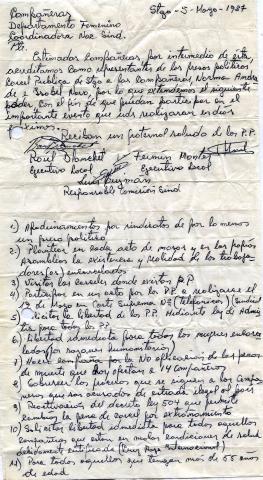 Compañeras Stgo - 5 - Mayo - 1987
Departamento Femenino
Coordinadora Nac. Sind.
Pte.
Estimadas Compañeras, por intermedio de esta,
acreditamos como representantes de los presos políticos
Carcel Publica de Stgo a las Compañeras, Norma
e Isabel para lo que extendemos el siguiente
poder. Con el fin de que puedan participar en el
importante evento que uds realizaran en dias
proximos.
Reciban un fraternal saludo de los P.P.
Raúl Blanchet Fermin Montes
Ejecutivo Local Ejecutivo Local
Luis Guzman
Responsable Comision Sind.
1) Apadrinamientos por sindicatos de por lo menos
un preso politico
2) Plantear en cada acto de mayo y en las propias
Asambleas la existencia y realidad de los trabaja-
dores(as) encarcelados
3) Visitas las carceles donde esten los P.P
4) Participar en un acto por los P.P. a realizarse el
de Mayo en Corte Suprema (Telefonicos)
5) Solicitar la libertad de los P.P. Mediante ley de Amnis-
tia para todos los P.P.
6) Libertad inmediata para todas las mujeres encarce-
ladas (por razones humanitarias)
7) Hacer campaña por la NO aplicacion de las penas
de muerte que hoy afectan a 14 Compañeros
8) los procesos que se siguen a los compa-
ñeros que son acusados de entrada ilegal al pais
9) Reactivacion del decreto ley 504 que permite
cambiar la pena de carcel por extrañamiento
10) Solicitar libertad inmediata para todos aquellos
compañeros que estan en malas condiciones de salud
debidamente certificada (Cruz Roja Internacional)
11) Para todos aquellos que tengan mas de 55 años
de edad